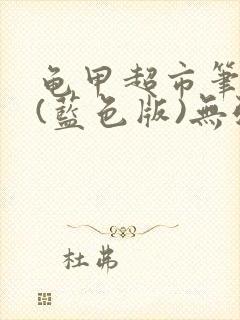 龟甲超市筆
(藍色版)無
杜弗